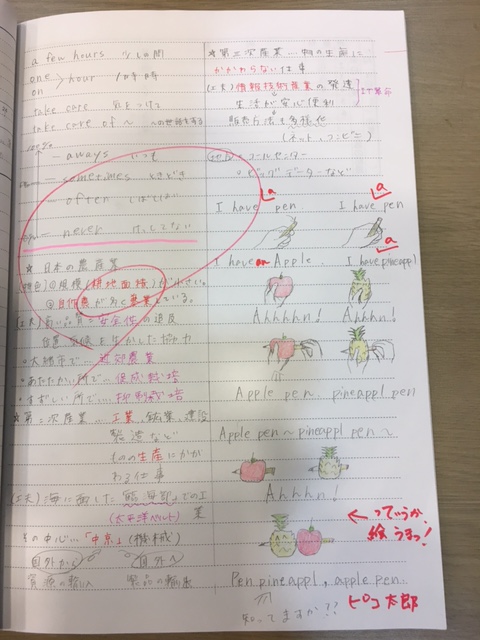 a few hours 少しの間
one > hour 1時間
on
take care 気をつけて
take care of 〜 〜の世話をする
100% — aways いつも
— sometimes ときどき
— often しばしば
— never けっしてない
☆ 日本の農産業
規模(耕地面積)が小さい。
自作農が多く営業している。
(工夫)高い品質と安全性の追及
位置、気候を生かした協力
・大都市で… 近郊農業
・あたたかい所で… 促成栽培
・すずしい所で… 抑制栽培
☆第二次産業… 工業、鉱業、建設
製造など
ものの生産にかか
わる仕事
(工夫)海に面した臨海部での工
業
(太平洋ベルト)
その中心…「中京」(機械)
国外から 国外へ
資源の輸入 製品の輸出
☆第三次産業…物の生産に
かかわらない仕事
(工夫)情報技術産業の発達
IT革命
生活が安心便利
販売方法も多様化
(ネット、コンビニ)
・コールセンター
・ビッグデータなど
a
I have pen
a
I have pen
I have an Apple.
a
I have pineappl
Ahhhn!
Ahhhn!
Apple pen. pineappl pen
Apple pen 〜 pineappl pen 〜
Ahhhn!
← っていうか
絵うまっ!
Pen pineappl, apple pen.
ピコ太郎
知ってますか??